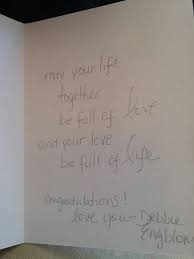 may your life
together
be full of love
and your love
be full of life
congratulations!
love you - Debbie
Engblom